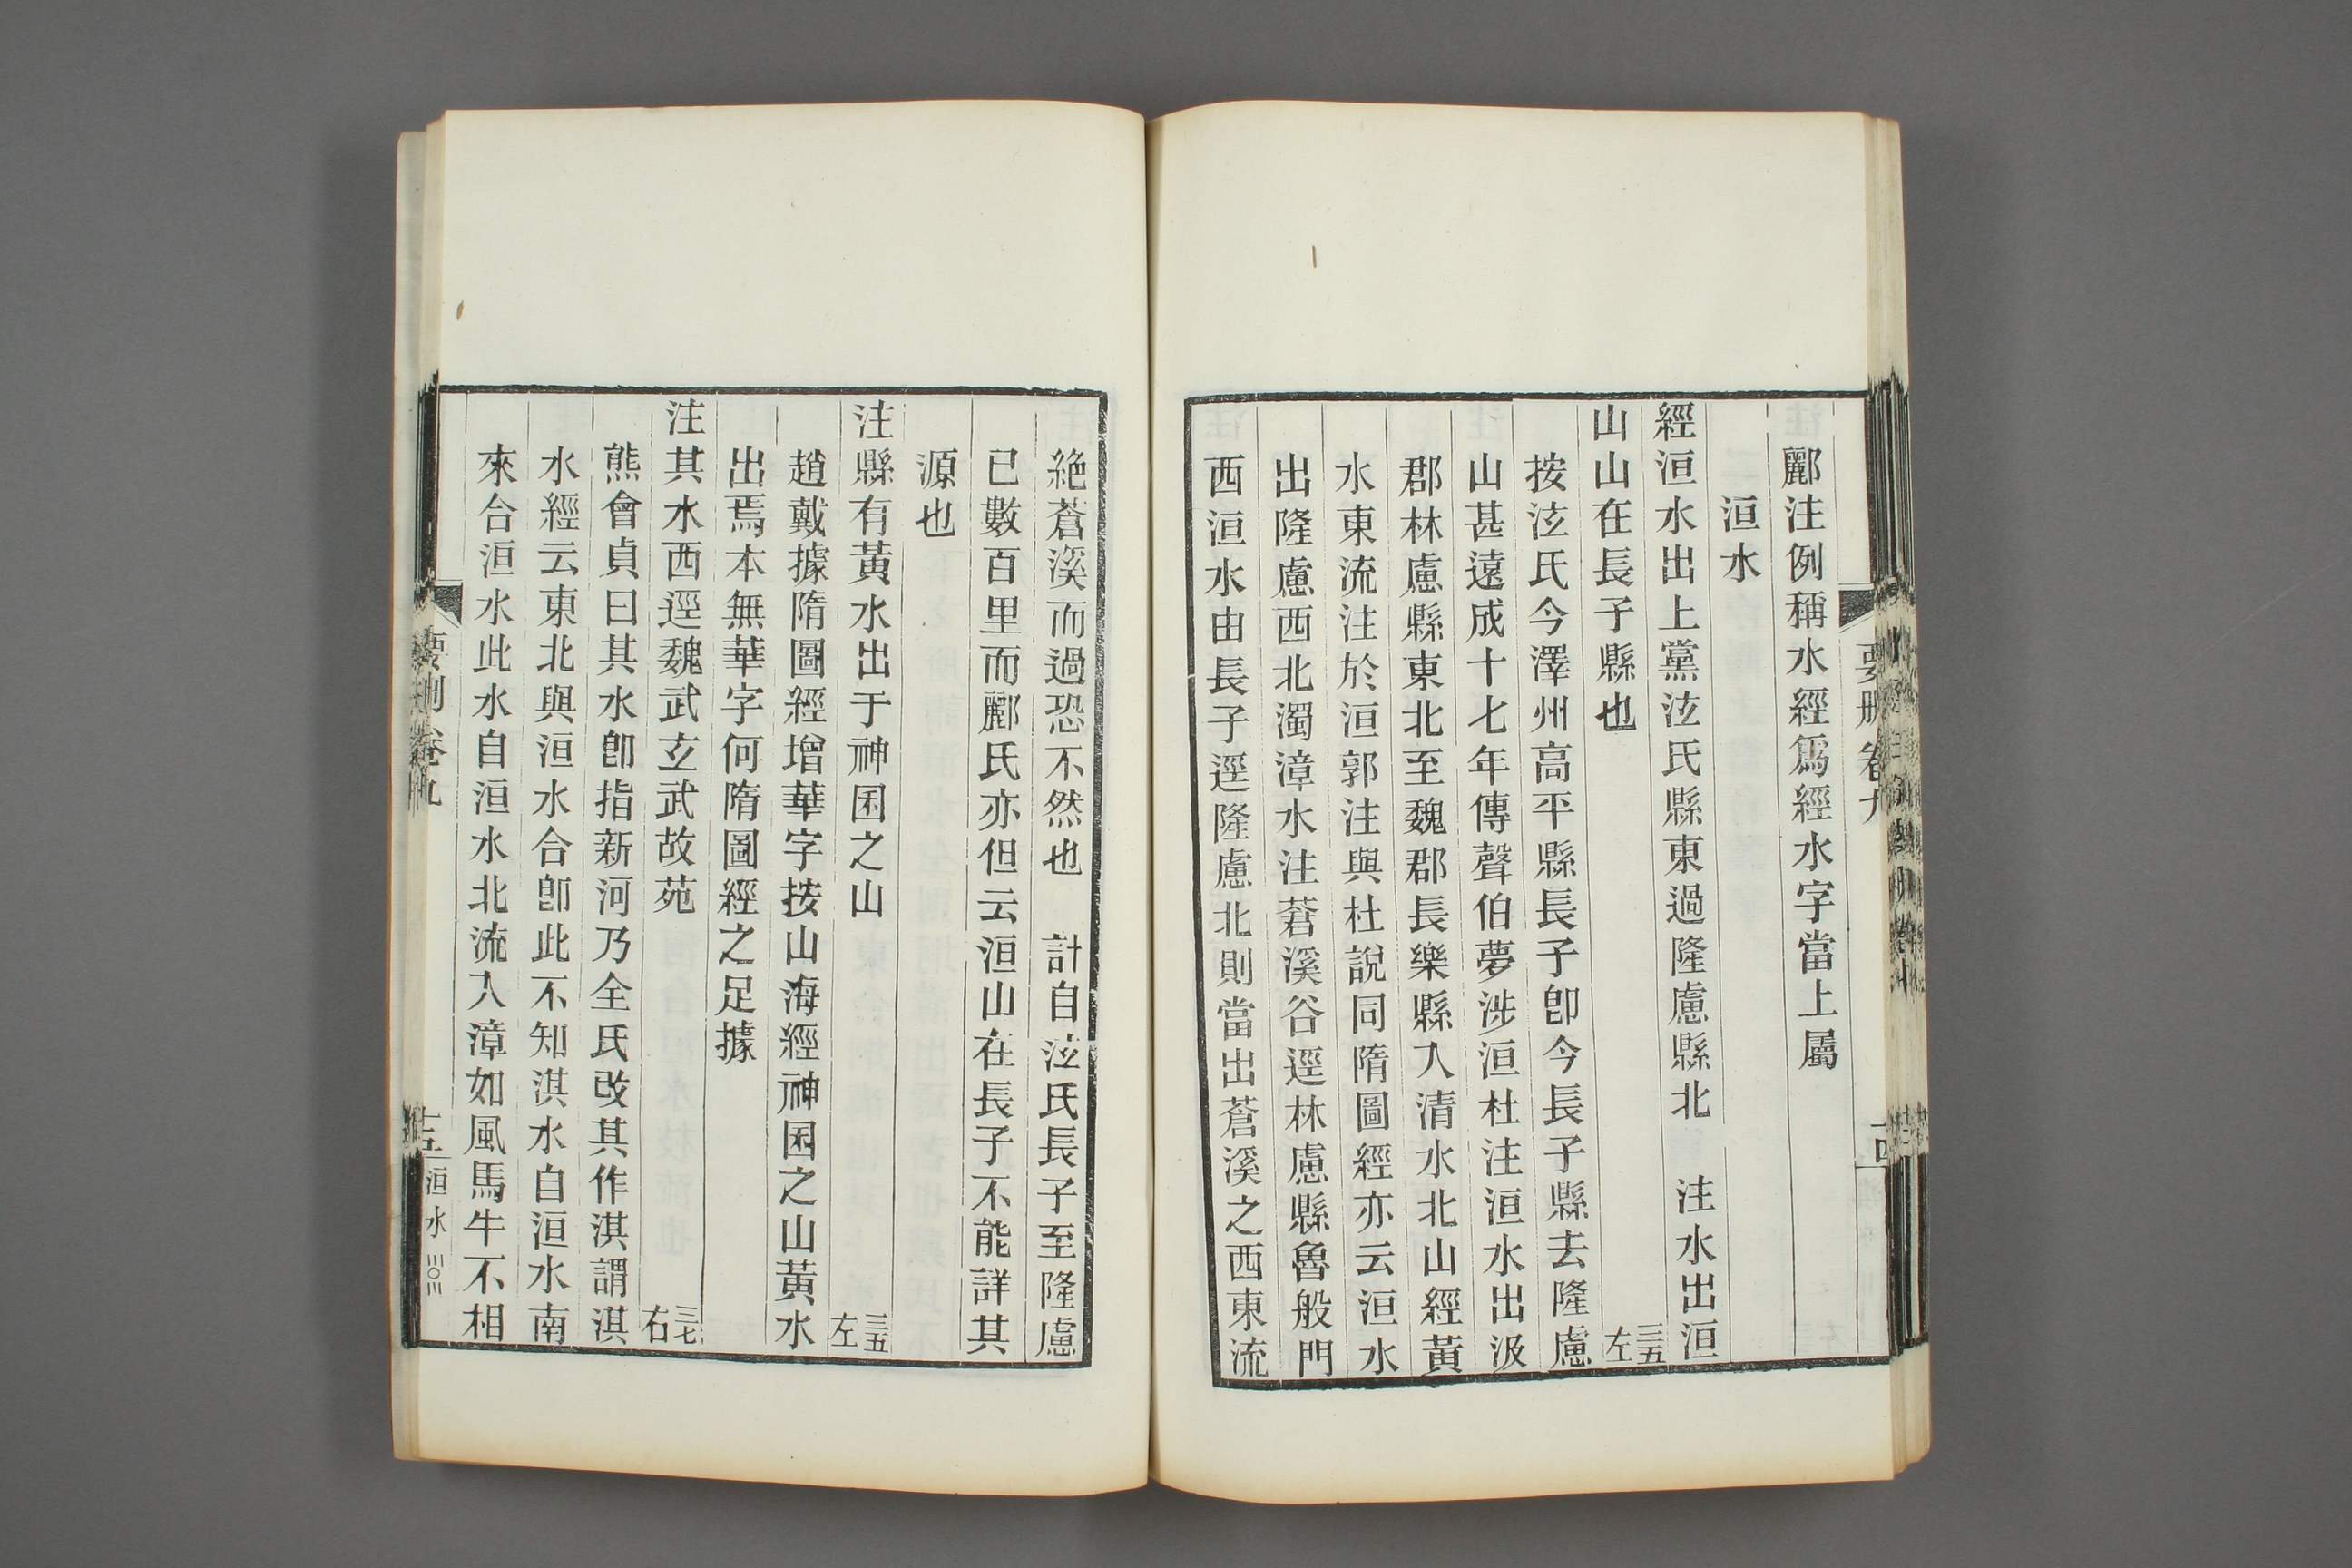 酈注例稱水經爲經水字當上屬
洹水
經洹水出上黨泫氏縣東過隆慮縣北 注水出洹
山山在長子縣也 三五左
按泫氏今澤州高平縣長子卽今長子縣去隆慮
山甚遠成十七年傳聲伯夢涉洹杜注洹水出汲
郡林慮縣東北至魏郡長樂縣入清水北山經黃
水東流注於洹郭注與杜說同隋圖經亦云洹水
出隆慮西北濁漳水注蒼溪谷逕林慮縣魯般門
西洹水由長子逕隆慮北則當出蒼溪之西東流
要刪卷九
絶蒼溪而過恐不然也 計自泫氏長子至隆慮
已數百里而酈氏亦但云洹山在長子不能詳其
源也
注縣有黃水出于神囷之山 三五左
趙戴據隋圖經增華字按山海經神囷之山黃水
出焉本無華字何隋圖經之足據
注其水西逕魏武玄武故苑 三七右
熊會貞曰其水卽指新河乃全氏改其作淇謂淇
水經云東北與洹水合卽此不知淇水自洹水南
來合洹水此水自洹水北流入漳如風馬牛不相
要刪卷九
十五
洹水 三〇三